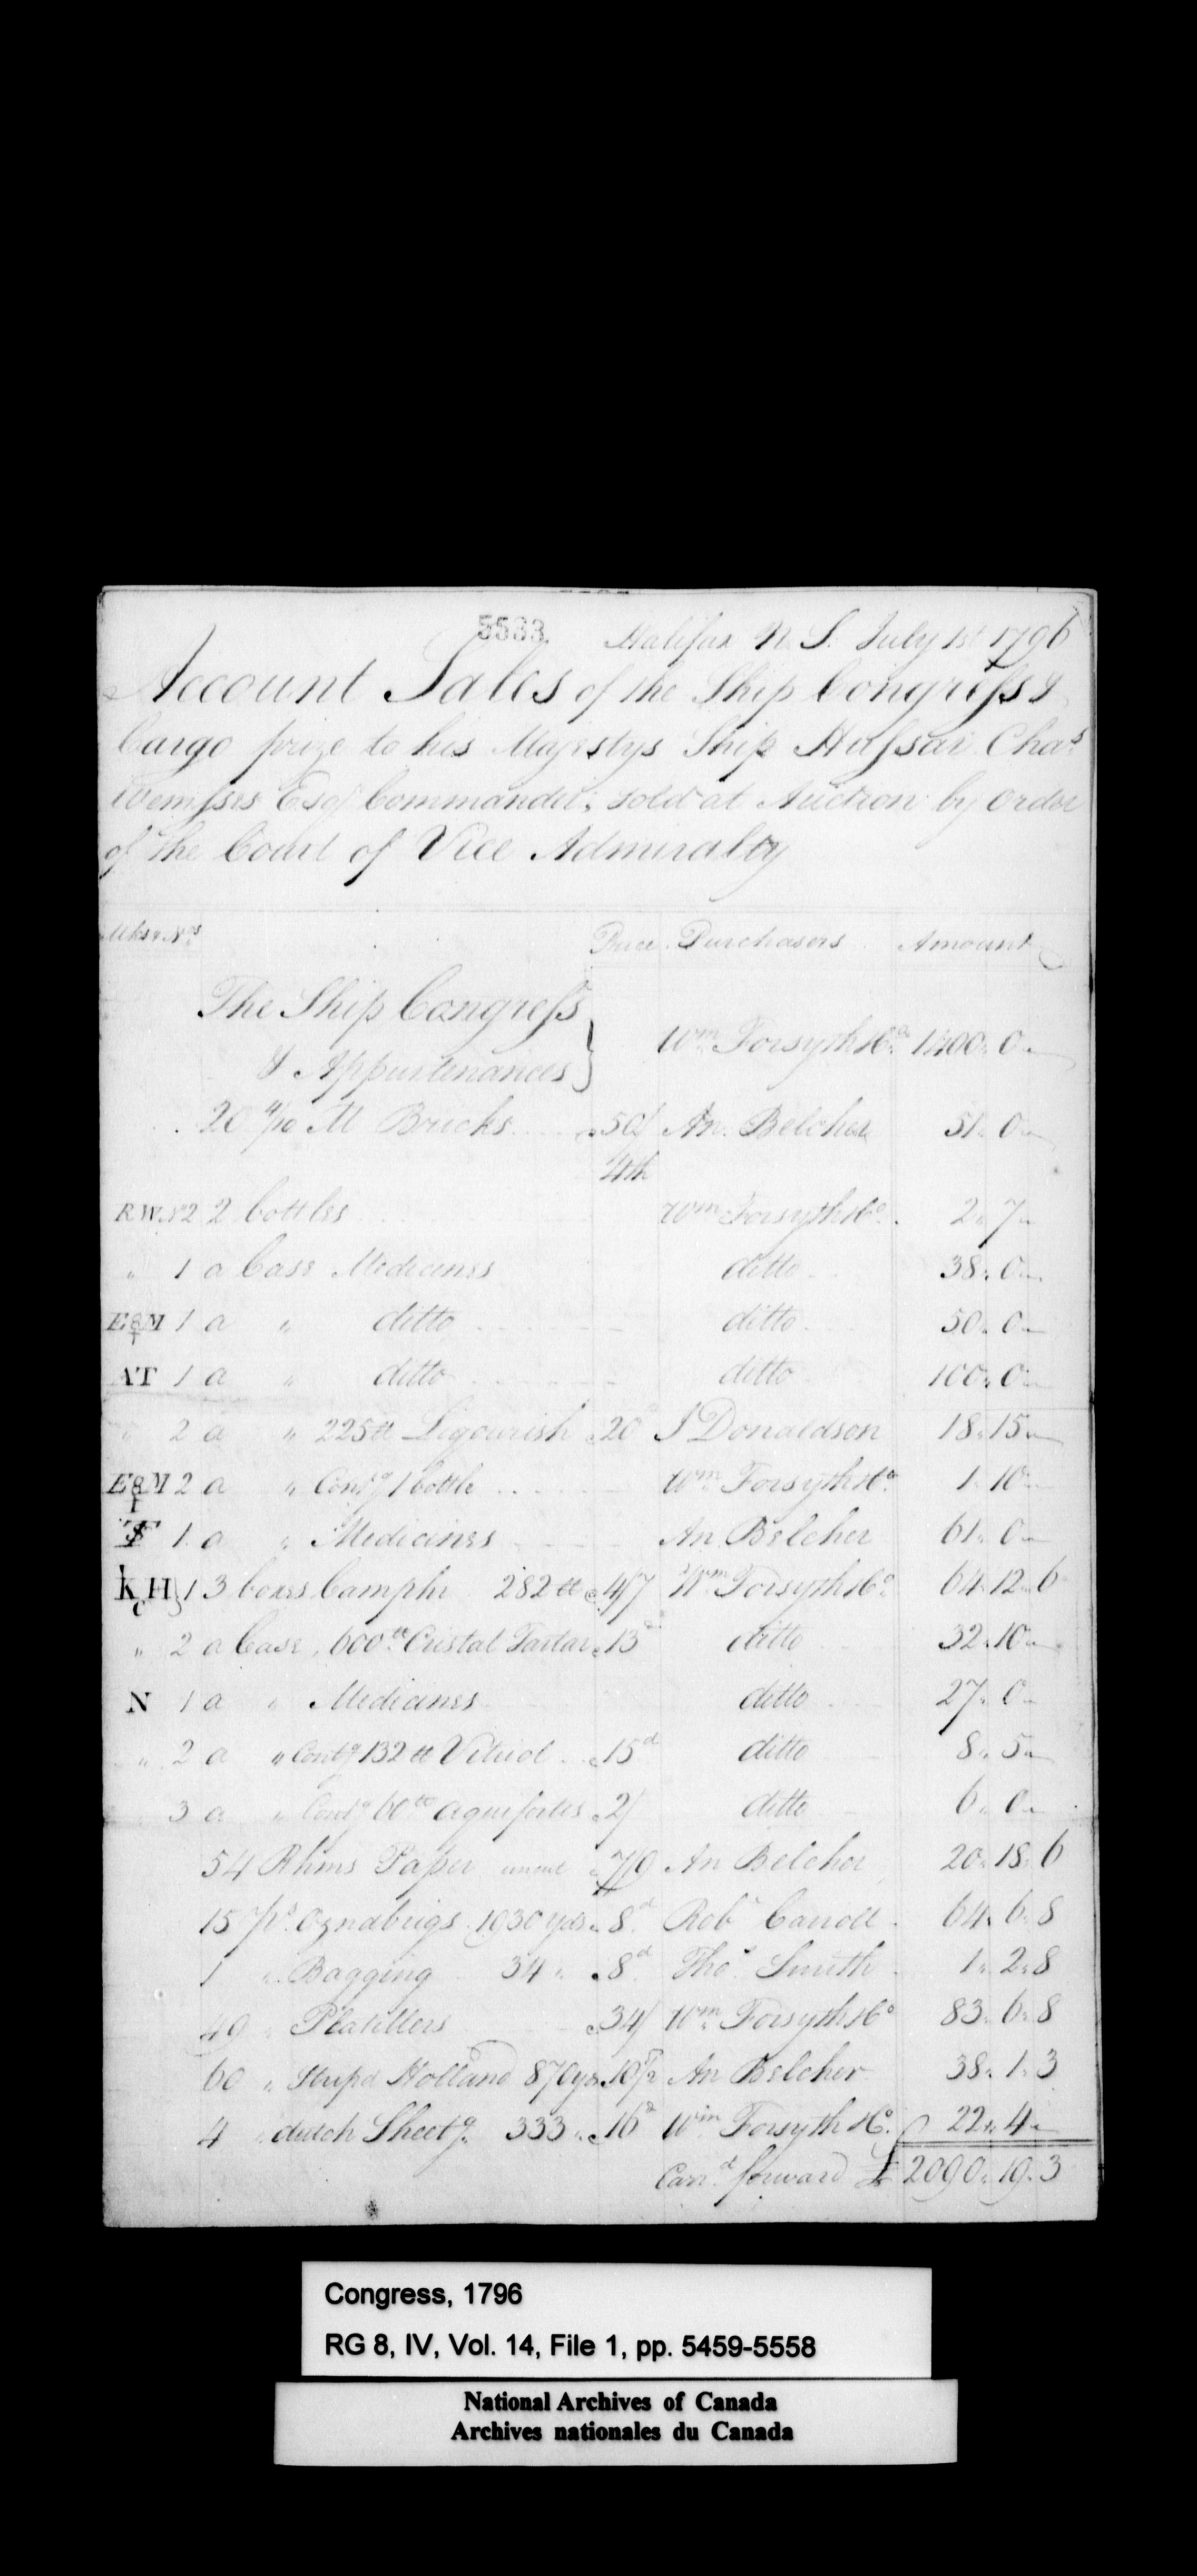 5533.
Halifax N. S. July 1st 1796
Account Sales of the Ship Congress &
Cargo prize to his Majestys Ship Hussar Chas
Wemyss Esqr Commander; sold at Auction by Order
of the Court of Vice Admiralty
Mks & Nos Price Purchasers Amount
The Ship Congress
& Appurtenances } Wm Forsyth & Co 1400 " 0 "
20 4/10 M Bricks @ 50/ An. Belcher 51 " 0 "
4th
R.W. No 2 2 bottles Wm Forsyth & Co 2 " 7 "
" 1 a Case Medicines ditto 38 " 0 "
E&M 1 a " ditto ditto 50 " 0 "
AT 1 a " ditto ditto 100 " 0 "
" 2 a " 225 lb Ligourish @ 20d J Donaldson 18 " 15 "
E&M 2 a " Contg 1 bottle Wm Forsyth & Co 1 " 10 "
1 a " Medicines An Belcher 61 " 0 "
KH 1 3 boxes Camphr 282 lb @ 4/7 Wm Forsyth & Co 64 " 12 " 6
" 2 a Case, 600 lb Cristal Tartar @ 13d ditto 32 " 10 "
N 1 a " Medicines ditto 27 " 0 "
" 2 a " Contg 132 lb Vitriol @ 15d ditto 8 " 5 "
" 3 a " Contg 60 lb aquifortes @ 2/ ditto 6 " 0 "
54 Rhms Paper @ 7/9 An Belcher 20 " 18 " 6
15 ps Oznabrigs 1930 yds @ 8d Robt Carroll 64 " 6 " 8
1 " Bagging 34 " @ 8d Thos Smith 1 " 2 " 8
49 " Platillers @ 34/ Wm Forsyth & Co 83 " 6 " 8
60 " Stripd Holland 870 yds @ 10½ An Belcher 38 " 1 " 3
4 " dutch Sheetg 333 " @ 16d Wm Forsyth & Co 22 " 4 "
Carrd forward £ 2090 " 19 " 3
Congress, 1796
RG 8, IV, Vol. 14, File 1, pp. 5459-5558
National Archives of Canada
Archives nationales du Canada